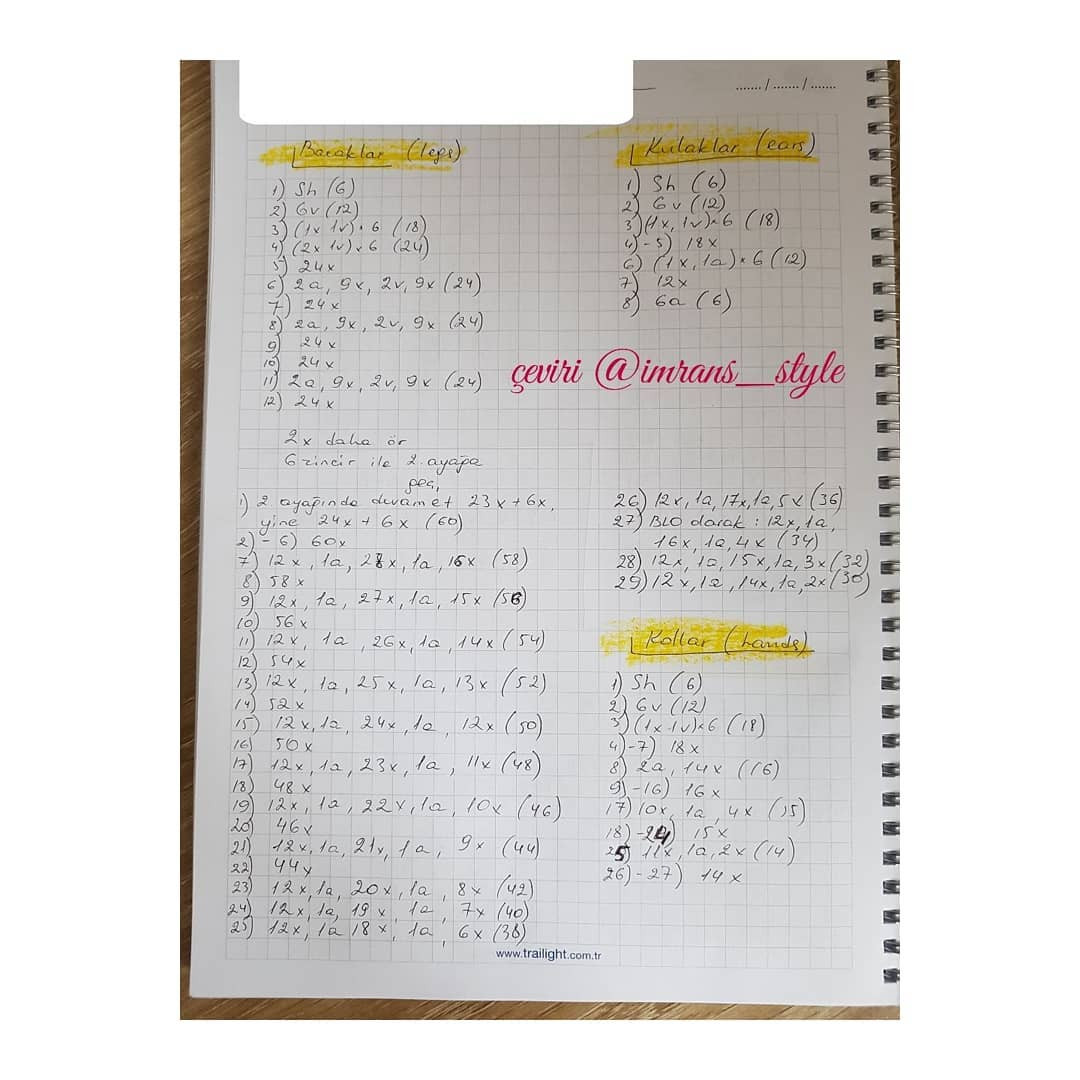 ....... / ....... / .......
Bacaklar (legs)
1) Sh (6)
2) 6v (12)
3) (1x 1v) × 6 (18)
4) (2x 1v) × 6 (24)
5) 24x
6) 2a, 9x, 2v, 9x (24)
7) 24x
8) 2a, 9x, 2v, 9x (24)
9) 24x
10) 24x
11) 2a, 9x, 2v, 9x (24)
12) 24x
2x daha ör
6 zincir ile 2. ayağa
geç,
1) 2. ayağında devam et 23x + 6x,
yine 24x + 6x (60)
2) - 6) 60x
7) 12x, 1a, 28x, 1a, 16x (58)
8) 58x
9) 12x, 1a, 27x, 1a, 15x (56)
10) 56x
11) 12x, 1a, 26x, 1a, 14x (54)
12) 54x
13) 12x, 1a, 25x, 1a, 13x (52)
14) 52x
15) 12x, 1a, 24x, 1a, 12x (50)
16) 50x
17) 12x, 1a, 23x, 1a, 11x (48)
18) 48x
19) 12x, 1a, 22x, 1a, 10x (46)
20) 46x
21) 12x, 1a, 21x, 1a, 9x (44)
22) 44x
23) 12x, 1a, 20x, 1a, 8x (42)
24) 12x, 1a, 19x, 1a, 7x (40)
25) 12x, 1a 18x, 1a, 6x (38)
Kulaklar (ears)
1) Sh (6)
2) 6v (12)
3) (1x, 1v) × 6 (18)
4) - 5) 18x
6) (1x, 1a) × 6 (12)
7) 12x
8) 6a (6)
çeviri @imrans__style
26) 12x, 1a, 17x, 1a, 5x (36)
27) BLO olarak : 12x, 1a,
16x, 1a, 4x (34)
28) 12x, 1a, 15x, 1a, 3x (32)
29) 12x, 1a, 14x, 1a, 2x (30)
Kollar (hands)
1) Sh (6)
2) 6v (12)
3) (1x 1v) × 6 (18)
4) - 7) 18x
8) 2a, 14x (16)
9) - 16) 16x
17) 10x, 1a, 4x (15)
18) - 24) 15x
25) 11x, 1a, 2x (14)
26) - 27) 14x
www.trailight.com.tr